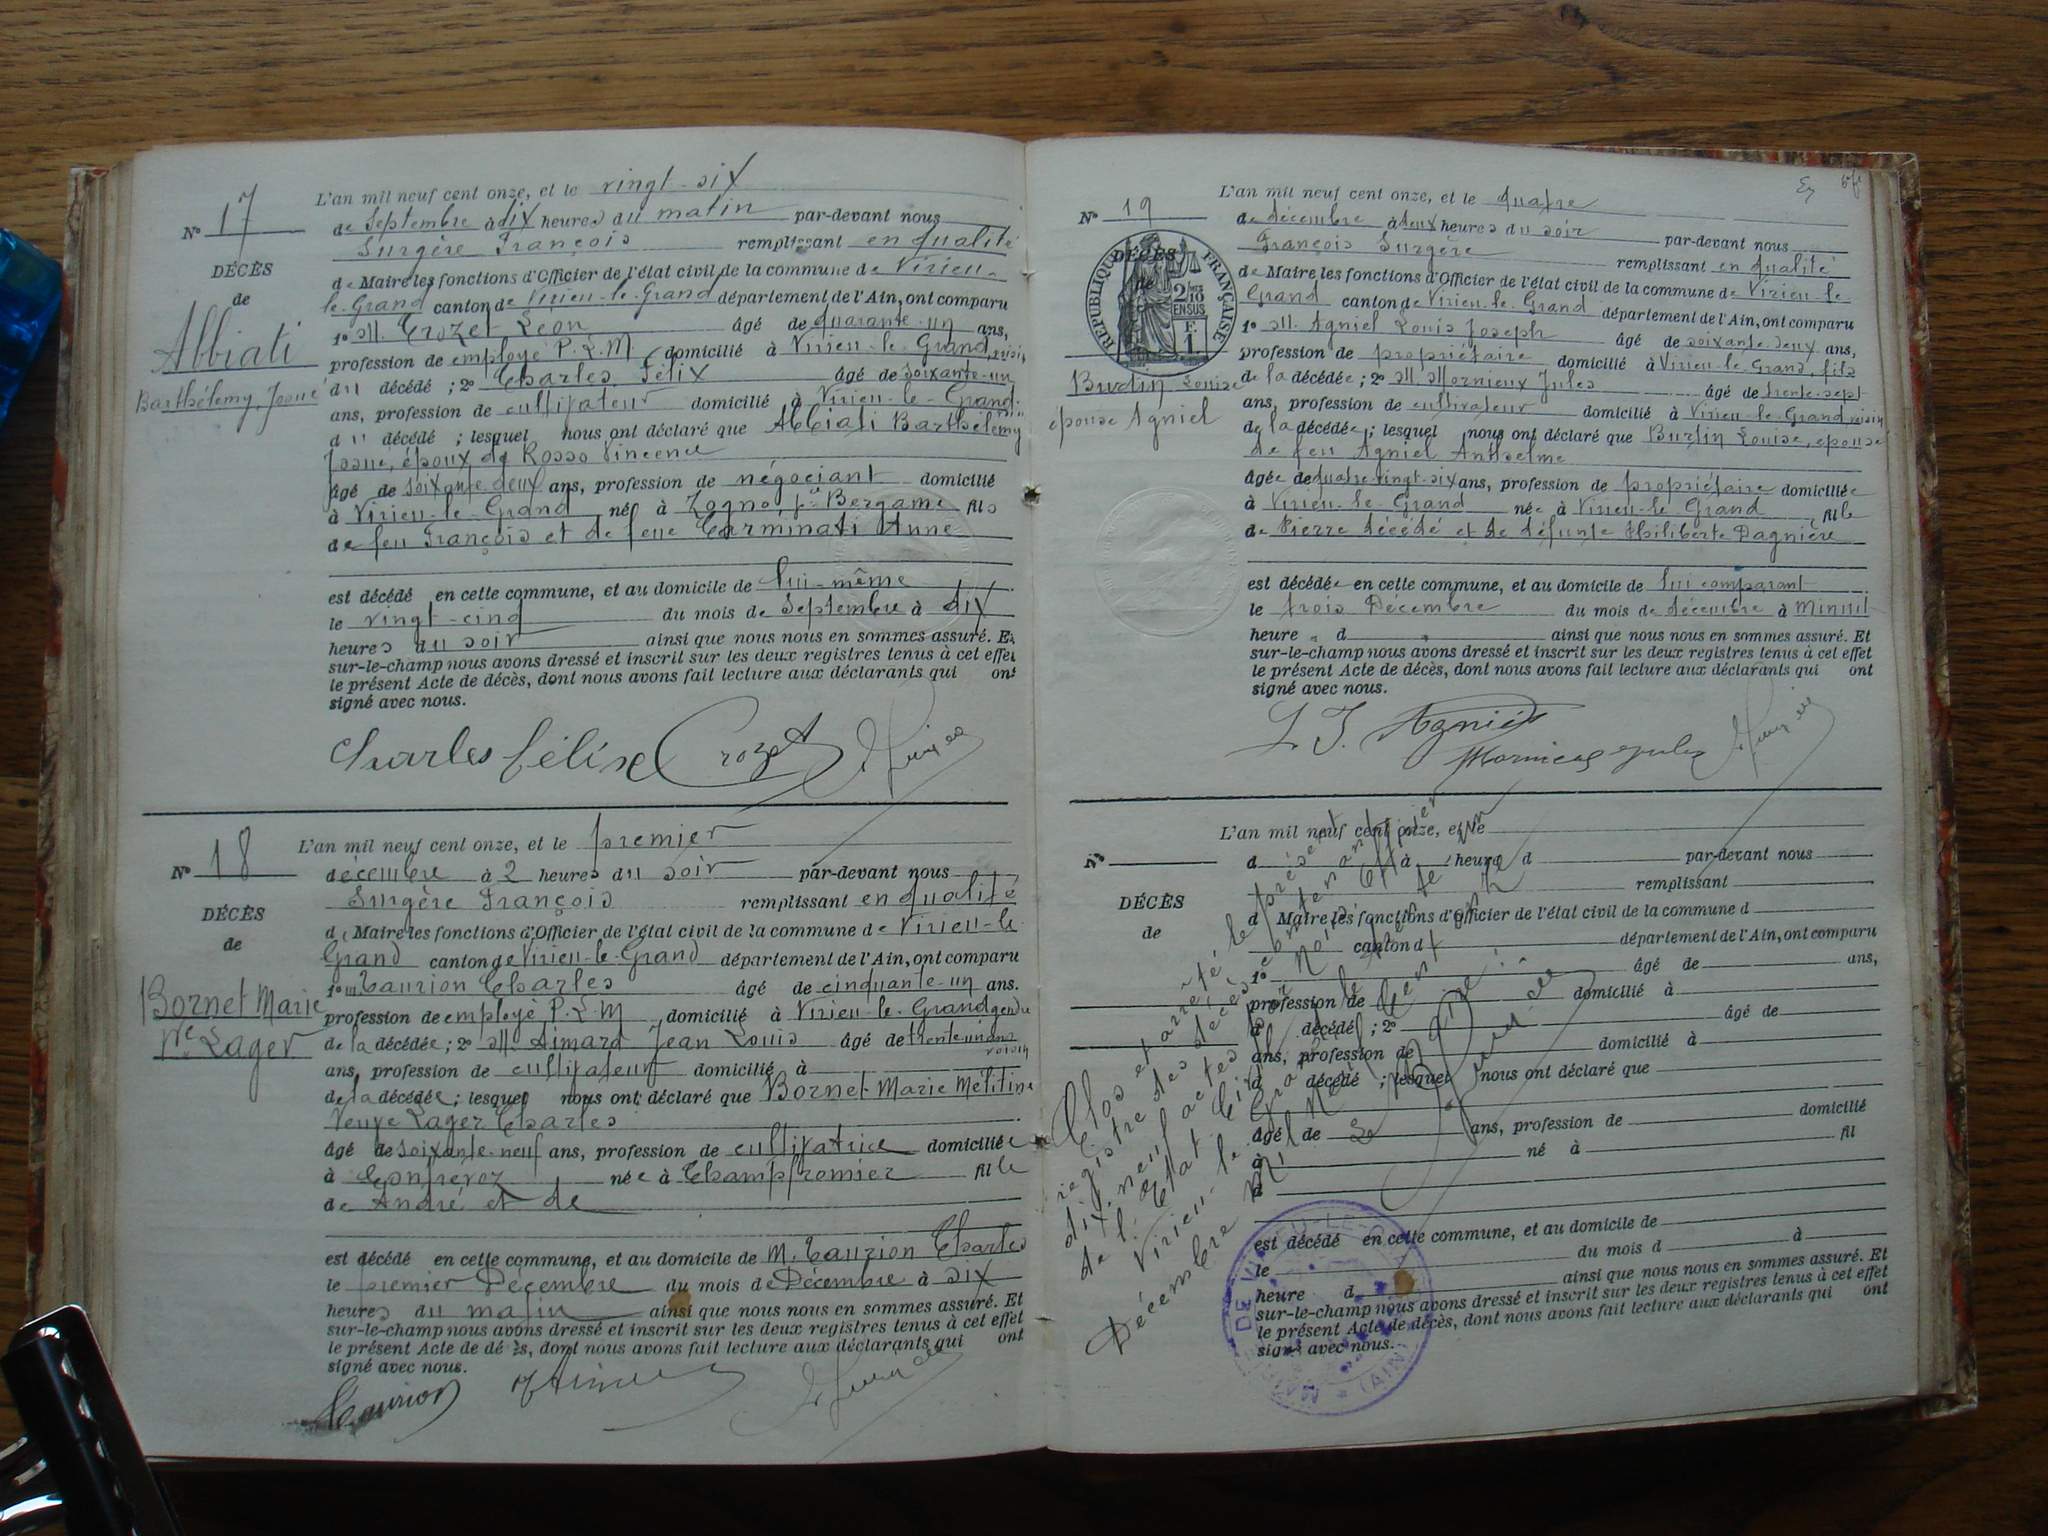 N° 17
DÉCÈS
de
Abbiati
Barthélemy, Josué
L'an mil neuf cent onze, et le vingt-six
de Septembre à dix heures du matin par-devant nous
Surgère François remplissant en qualité
de Maire les fonctions d'Officier de l'état civil de la commune de Virieu-
le-Grand canton de Virieu-le-Grand département de l'Ain, ont comparu
1° M. Crozet Léon âgé de quarante-un ans,
profession de employé P.L.M. domicilié à Virieu-le-Grand, voisin
du décédé ; 2° Charles Félix âgé de soixante-un
ans, profession de cultivateur domicilié à Virieu-le-Grand, voisin
du décédé ; lesquel nous ont déclaré que Abbiati Barthélemy
Josué, époux de Rosso Vincence
âgé de soixante-deux ans, profession de négociant domicilié
à Virieu-le-Grand né à Zogno, pce Bergame fils
de feu François et de feue Carminati Anne
est décédé en cette commune, et au domicile de lui-même
le vingt-cinq du mois de Septembre à dix
heures du soir ainsi que nous nous en sommes assuré. Et
sur-le-champ nous avons dressé et inscrit sur les deux registres tenus à cet effet
le présent Acte de décès, dont nous avons fait lecture aux déclarants qui ont
signé avec nous.
Charles félix Crozet
N° 18
DÉCÈS
de
Bornet Marie
Vve Lager
L'an mil neuf cent onze, et le premier
décembre à 2 heures du soir par-devant nous
Surgère François remplissant en qualité
de Maire les fonctions d'Officier de l'état civil de la commune de Virieu-le-
Grand canton de Virieu-le-Grand département de l'Ain, ont comparu
1° M. Taurion Charles âgé de cinquante-un ans.
profession de employé P.L.M domicilié à Virieu-le-Grand gendre
de la décédée ; 2° M. Aimard Jean Louis âgé de trente-un ans
voisin
ans, profession de cultivateur domicilié à
de la décédée ; lesquel nous ont déclaré que Bornet Marie Mélitine
Veuve Lager Charles
âgé de soixante-neuf ans, profession de cultivatrice domiciliée
à Confrevoz née à Champfromier fille
de André et de
est décédé en cette commune, et au domicile de M. Taurion Charles
le premier Décembre du mois de Décembre à six
heures du matin ainsi que nous nous en sommes assuré. Et
sur-le-champ nous avons dressé et inscrit sur les deux registres tenus à cet effet
le présent Acte de décès, dont nous avons fait lecture aux déclarants qui ont
signé avec nous.
Taurion
N° 19
DÉCÈS
de
RÉPUBLIQUE FRANÇAISE
2/10 EN SUS
F. 1
Burtin Louise
épouse Agniel
L'an mil neuf cent onze, et le quatre
de décembre à deux heures du soir par-devant nous
François Surgère remplissant en qualité
de Maire les fonctions d'Officier de l'état civil de la commune de Virieu-le-
Grand canton de Virieu-le-Grand département de l'Ain, ont comparu
1° M. Agniel Louis Joseph âgé de soixante-deux ans,
profession de propriétaire domicilié à Virieu-le-Grand, fils
de la décédée ; 2° M. Mornieux Jules âgé de trente-sept
ans, profession de cultivateur domicilié à Virieu-le-Grand, voisin
de la décédée ; lesquel nous ont déclaré que Burtin Louise, épouse
de feu Agniel Anthelme
âgée de quatre-vingt-six ans, profession de propriétaire domiciliée
à Virieu-le-Grand née à Virieu-le-Grand fille
de Pierre décédé et de défunte Philiberte Dagnière
est décédée en cette commune, et au domicile de lui comparant
le trois Décembre du mois de décembre à minuit
heure d ainsi que nous nous en sommes assuré. Et
sur-le-champ nous avons dressé et inscrit sur les deux registres tenus à cet effet
le présent Acte de décès, dont nous avons fait lecture aux déclarants qui ont
signé avec nous.
L J. Agniel
Mornieux Jules
N°
DÉCÈS
de
L'an mil neuf cent onze, et le
d à heure d par-devant nous
remplissant
d Maire les fonctions d'Officier de l'état civil de la commune d
canton d département de l'Ain, ont comparu
1° âgé de ans,
profession de domicilié à
d décédé ; 2° âgé de
ans, profession de domicilié à
d décédé ; lesquel nous ont déclaré que
âgé de ans, profession de domicilié
à né à fil
d
est décédé en cette commune, et au domicile de
le du mois d à
heure d ainsi que nous nous en sommes assuré. Et
sur-le-champ nous avons dressé et inscrit sur les deux registres tenus à cet effet
le présent Acte de décès, dont nous avons fait lecture aux déclarants qui ont
signé avec nous.
Clos et arrêté le présent
registre des décès contenant
dix-neuf actes par Nous Officier
de l'Etat Civil
Virieu-le-Grand, le trente-un
Décembre Mil Neuf Cent onze
Le Maire :
MAIRIE DE VIRIEU-LE-GRAND (AIN)